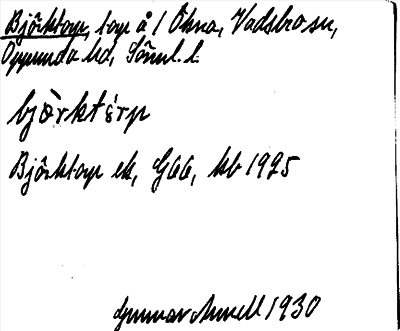 Björktorp, torp å 1 Ökna, Vadsbro sn,
Oppunda hd, Söml. l.
bjö̀rktórp
Björktorp ek, G66, kb 1925
Gunnar Amnell 1930